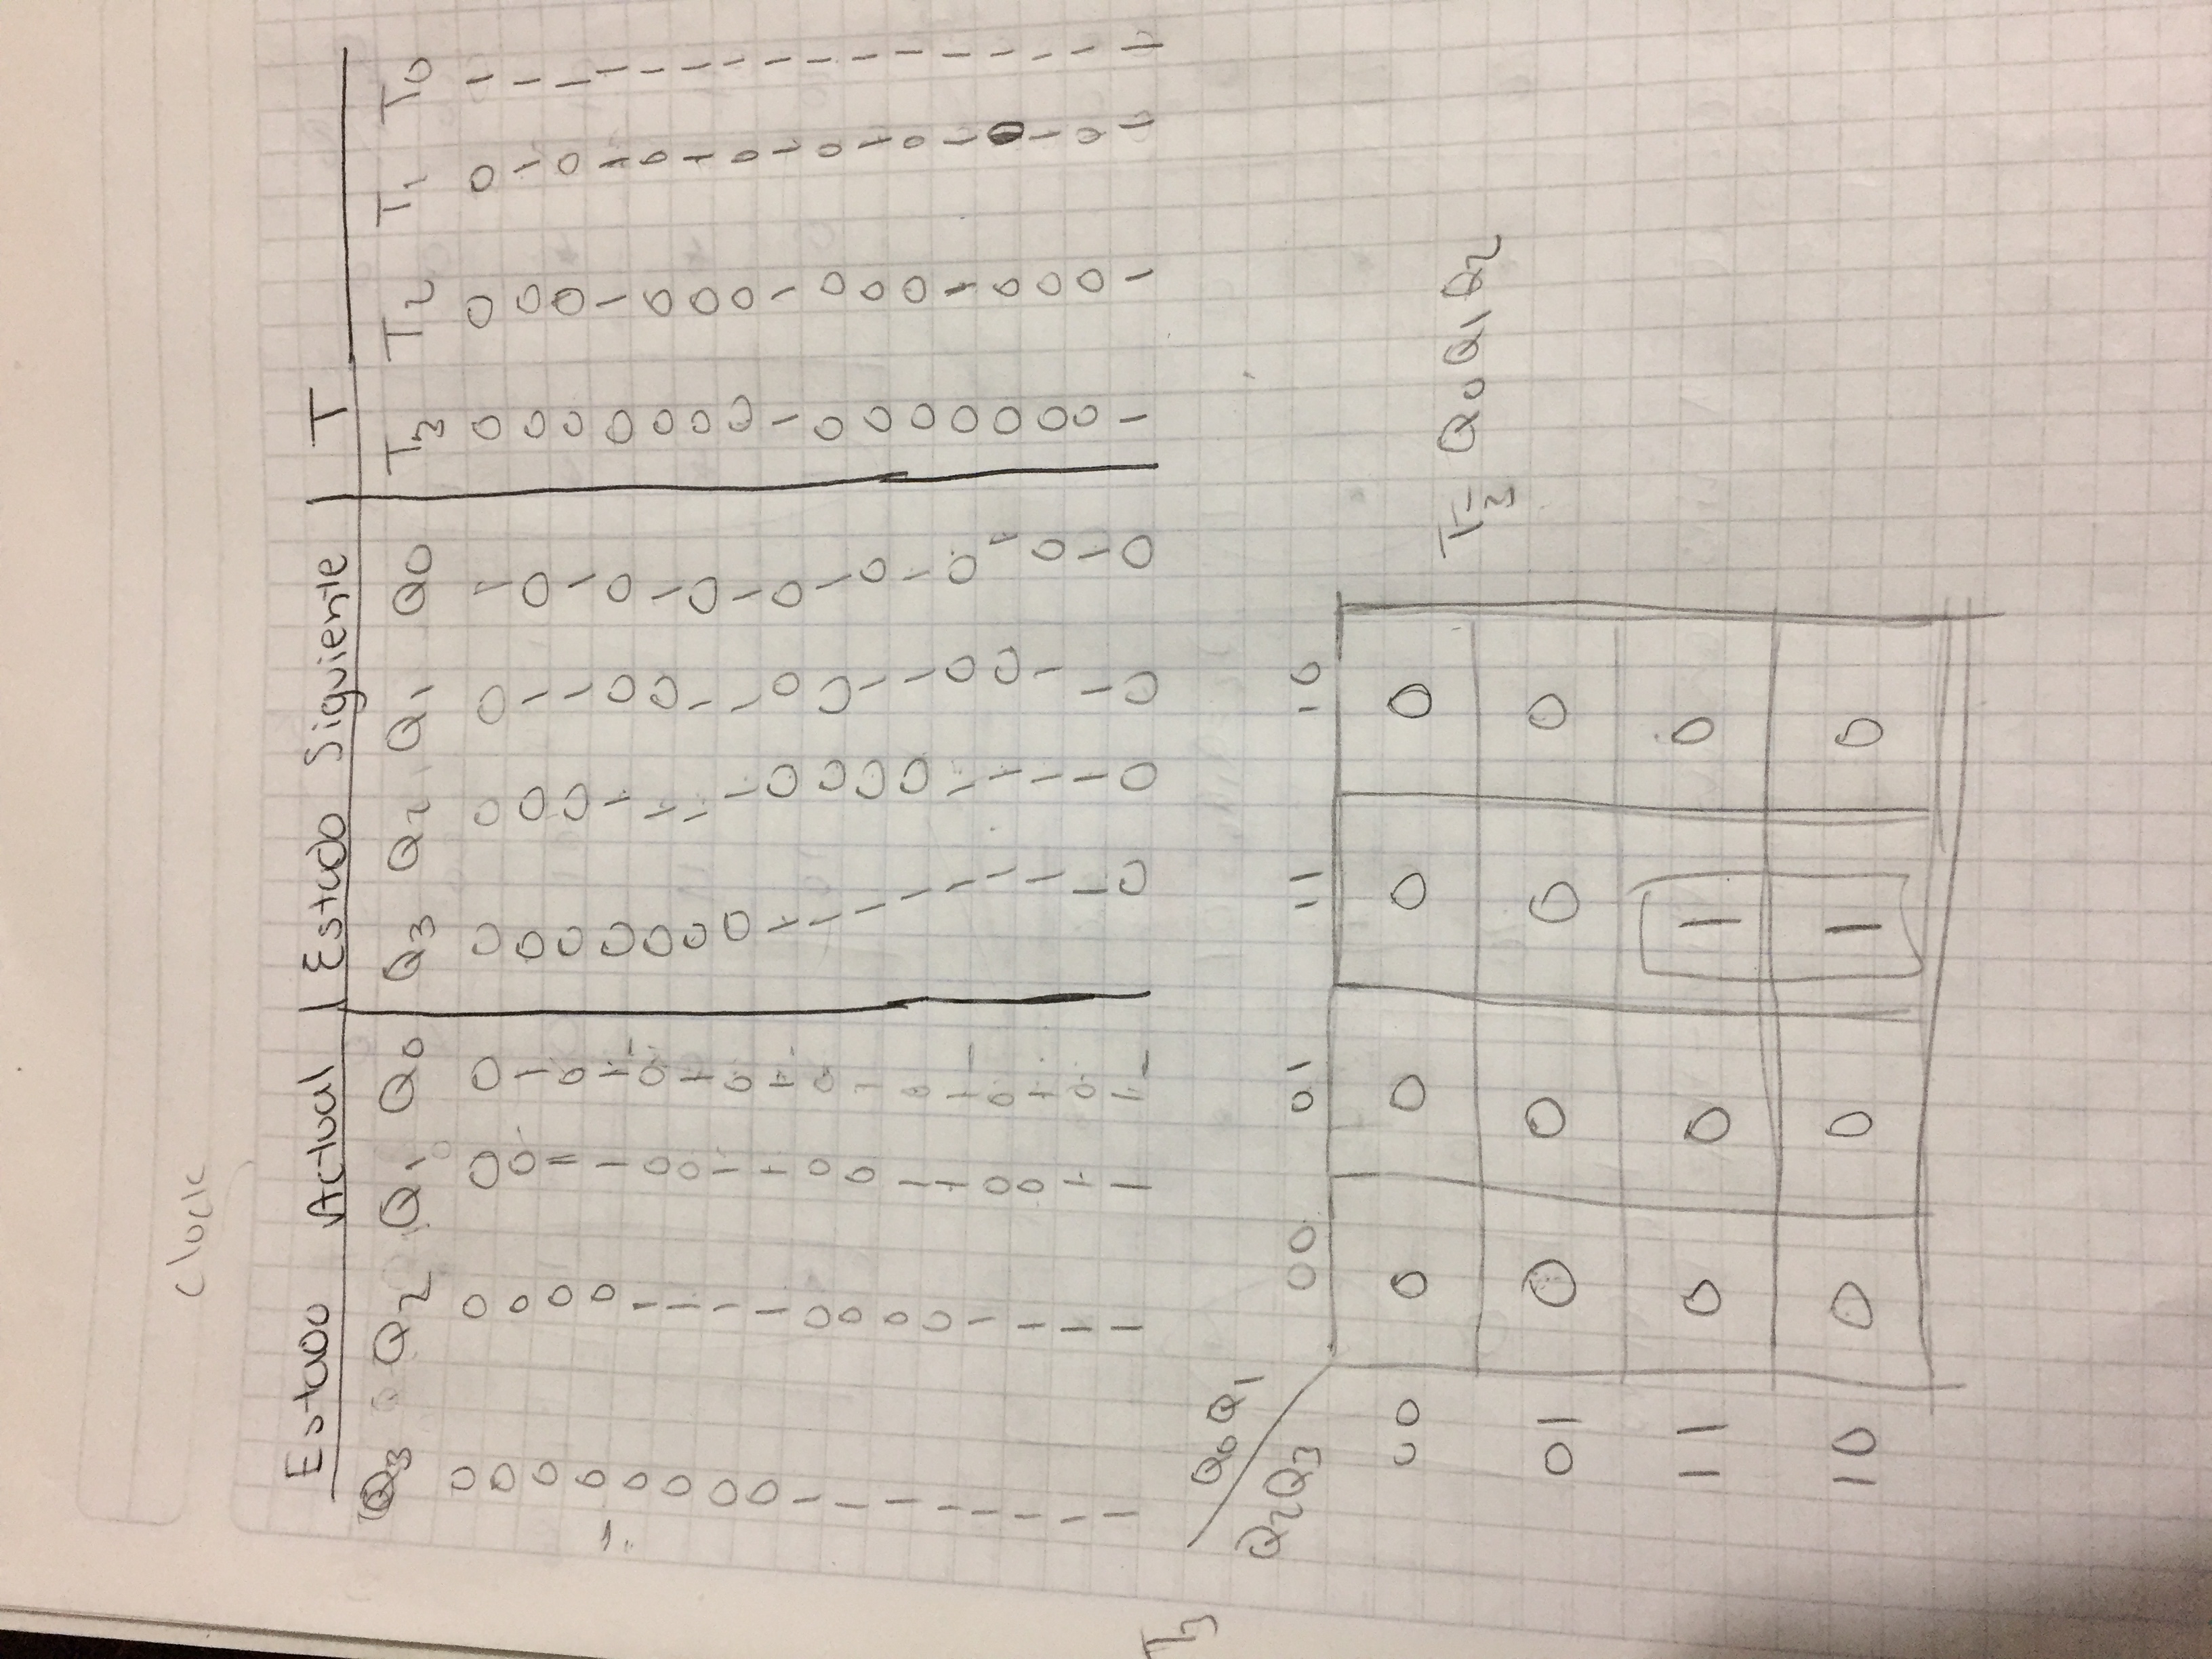 Clock
Estado Actual | Estado Siguiente | T
Q3 Q2 Q1 Q0 | Q3 Q2 Q1 Q0 | T3 T2 T1 T0
0 0 0 0 0 0 0 1 0 0 0 1
0 0 0 1 0 0 1 0 0 0 1 1
0 0 1 0 0 0 1 1 0 0 0 1
0 0 1 1 0 1 0 0 0 1 1 1
0 1 0 0 0 1 0 1 0 0 0 1
0 1 0 1 0 1 1 0 0 0 1 1
0 1 1 0 0 1 1 1 0 0 0 1
0 1 1 1 1 0 0 0 1 1 1 1
1 0 0 0 1 0 0 1 0 0 0 1
1 0 0 1 1 0 1 0 0 0 1 1
1 0 1 0 1 0 1 1 0 0 0 1
1 0 1 1 1 1 0 0 0 1 1 1
1 1 0 0 1 1 0 1 0 0 0 1
1 1 0 1 1 1 1 0 0 0 1 1
1 1 1 0 1 1 1 1 0 0 0 1
1 1 1 1 0 0 0 0 1 1 1 1
T3
Q0Q1
Q2Q3
00 01 11 10
00 0 0 0 0
T3= Q0Q1Q2
01 0 0 0 0
11 0 0 1 0
10 0 0 1 0